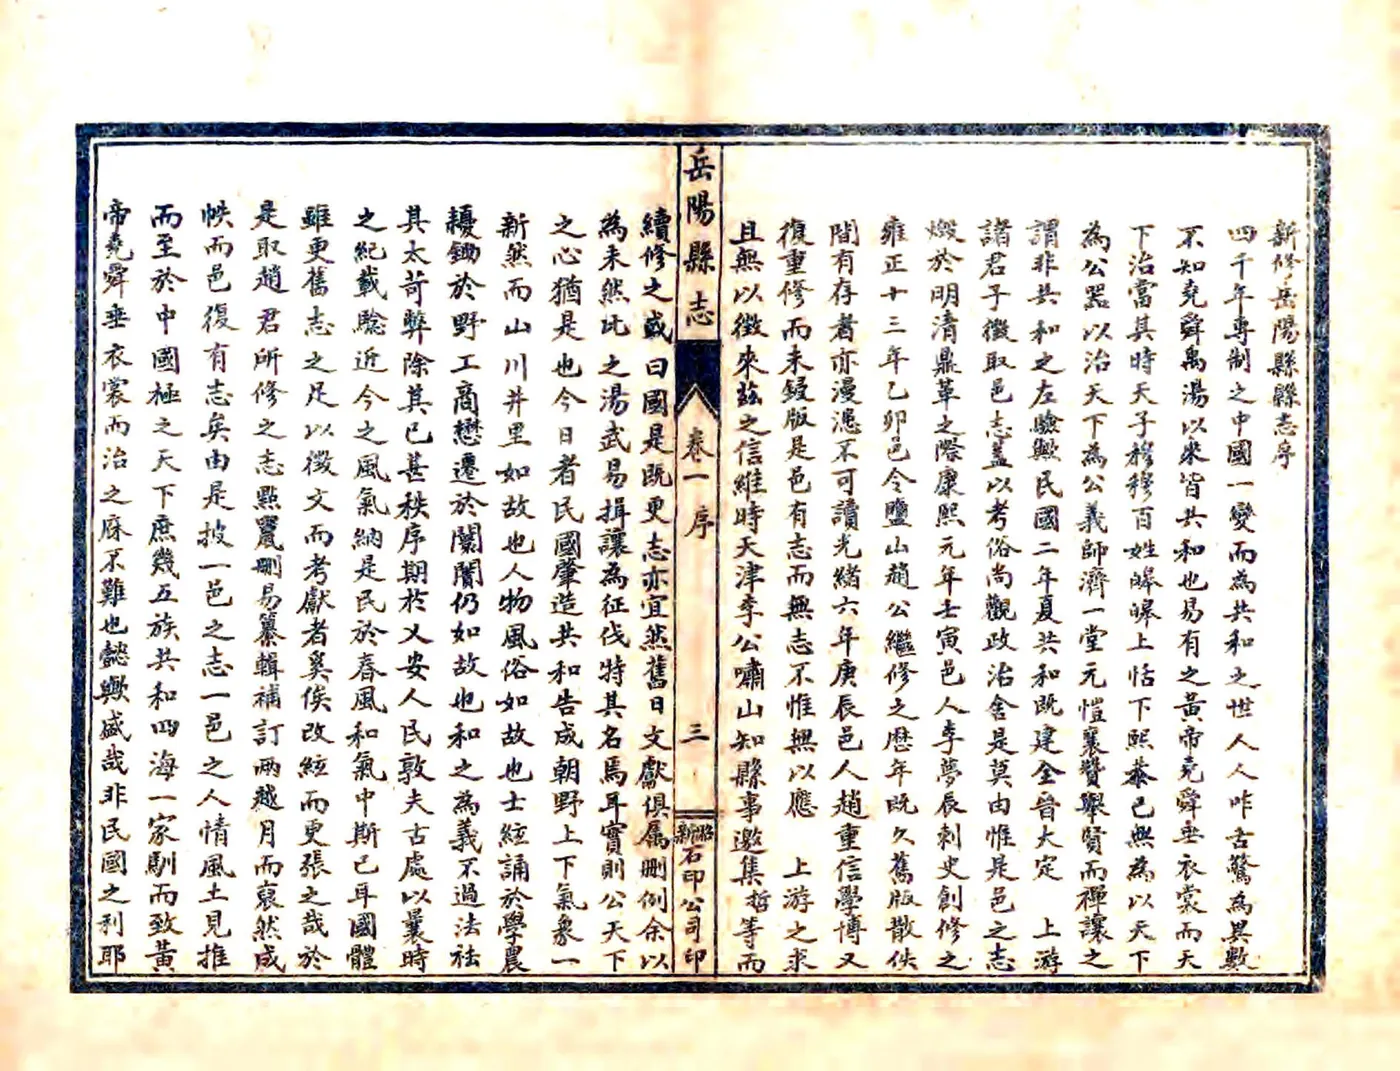 新修岳陽縣縣志序
四千年專制之中國一變而為共和之世人人咋舌驚為異數
不知堯舜禹湯以來皆共和也易有之黃帝堯舜垂衣裳而天
下治當其時天子穆穆百姓皞皞上恬下熙恭己無為以天下
為公器以治天下為公義師濟一堂元愷襄贊舉賢而禪讓之
謂非共和之左驗歟民國二年夏共和既建全晉大定　上游
諸君子徵取邑志蓋以考俗尚觀政治舍是莫由惟是邑之志
燬於明清鼎革之際康熙元年壬寅邑人李夢辰刺史創修之
雍正十三年乙卯邑令鹽山趙公繼修之歷年既久舊版散佚
間有存者亦漫漶不可讀光緒六年庚辰邑人趙重信學博又
復重修而未鋟版是邑有志而無志不惟無以應　上游之求
且無以徵來茲之信維時天津李公嘯山知縣事邀集哲等而
岳陽縣志
卷一 序
三
石印公司印
續修之或曰國是既更志亦宜然舊日文獻俱屬刪例余以
為未然比之湯武易揖讓為征伐特其名焉耳實則公天下
之心猶是也今日者民國肇造共和告成朝野上下氣象一
新然而山川井里如故也人物風俗如故也士絃誦於學農
耰鋤於野工商懋遷於闤闠仍如故也和之為義不過法祛
其太苛弊除其已甚秩序期於乂安人民敦夫古處以曩時
之紀載驗近今之風氣納是民於春風和氣中斯已耳國體
雖更舊志之足以徵文而考獻者奚俟改絃而更張之哉於
是取趙君所修之志點竄刪易纂輯補訂兩越月而裒然成
帙而邑復有志矣由是披一邑之志一邑之人情風土見推
而至於中國極之天下庶幾五族共和四海一家馴而致黃
帝堯舜垂衣裳而治之庥不難也懿歟盛哉非民國之利耶